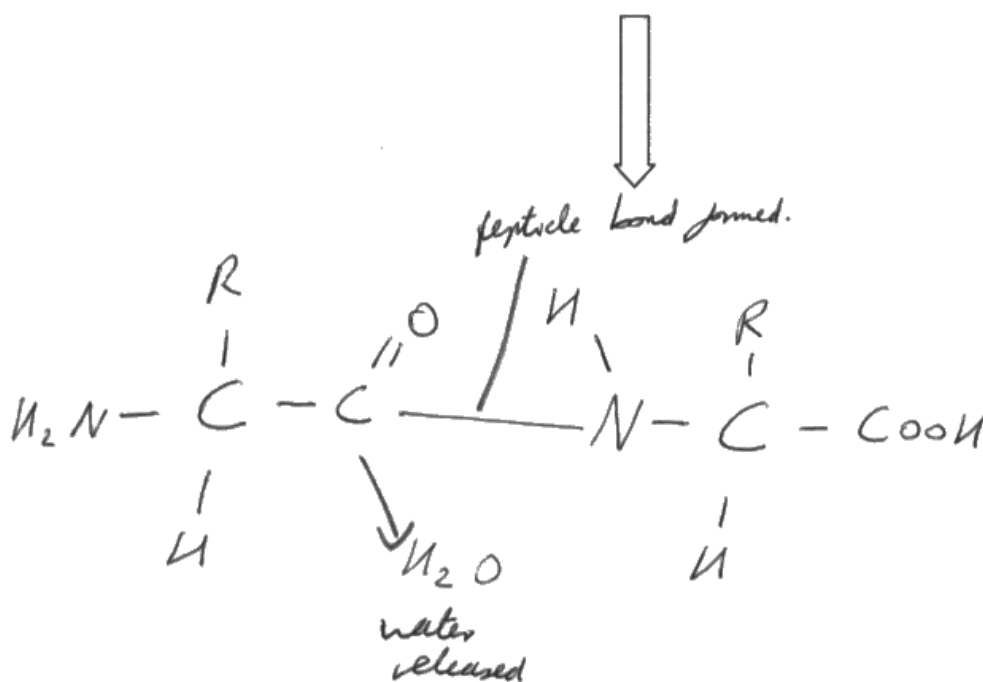 peptide bond formed.
R
O
H
R
H₂N – C – C — N – C – COOH
H
H₂O
H
water
released